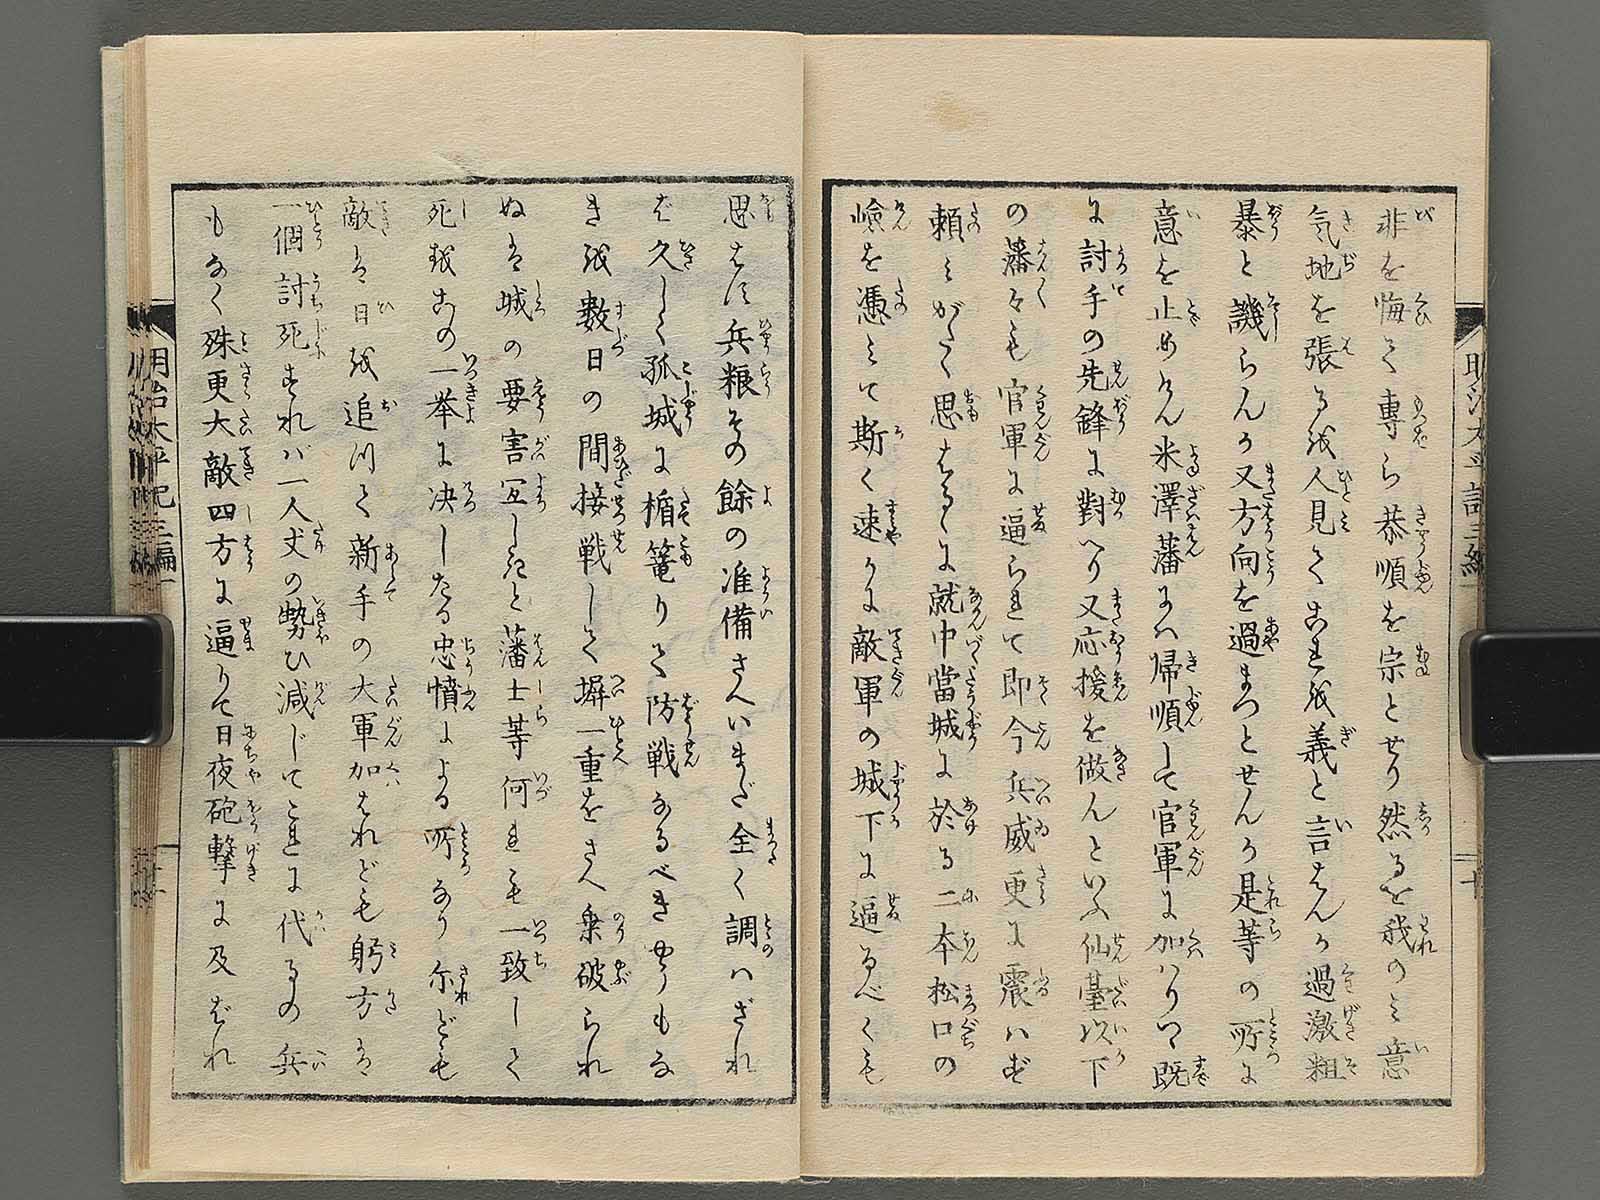 非を悔て専ら恭順を宗とせり然るを我のミ意
気地を張るを人見てこれを義と言はんか過激粗
暴と譏らんか又方向を過まつとせんか是等の所に
意を止めけん米澤藩ハ帰順して官軍に加ハりつ既
に討手の先鋒に對へり又応援を做んといふ仙臺以下
の藩々も官軍に逼られて即今兵威更に震ハず
頼ミがたく思はるゝに就中當城に於る二本松口の
嶮を憑ミて斯く速かに敵軍の城下に逼るべくも
思はず兵粮その餘の准備さへいまだ全く調ハざれ
ば久しく孤城に楯篭りて防戦なるべきやうもな
きを數日の間接戦して塀一重をさへ乗破られ
ぬは城の要害冝しきと藩士等何れも一致して
死を一挙に决したる忠憤による所なり尓れども
敵は日を追つて新手の大軍加はれども躬方は
一個討死すれバ一人丈の勢ひ減じてこれに代るの兵
もなく殊更大敵四方に逼りて日夜砲撃に及ばれ
明治太平記三編
明治太平記三編